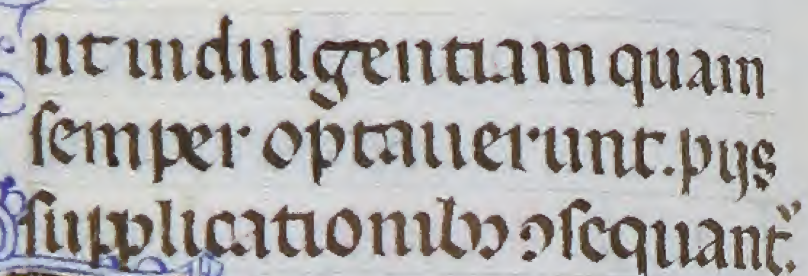 ut indulgentiam quam
semper optauerunt. pijs
supplicationibꝰ ꝯsequantᷣ.